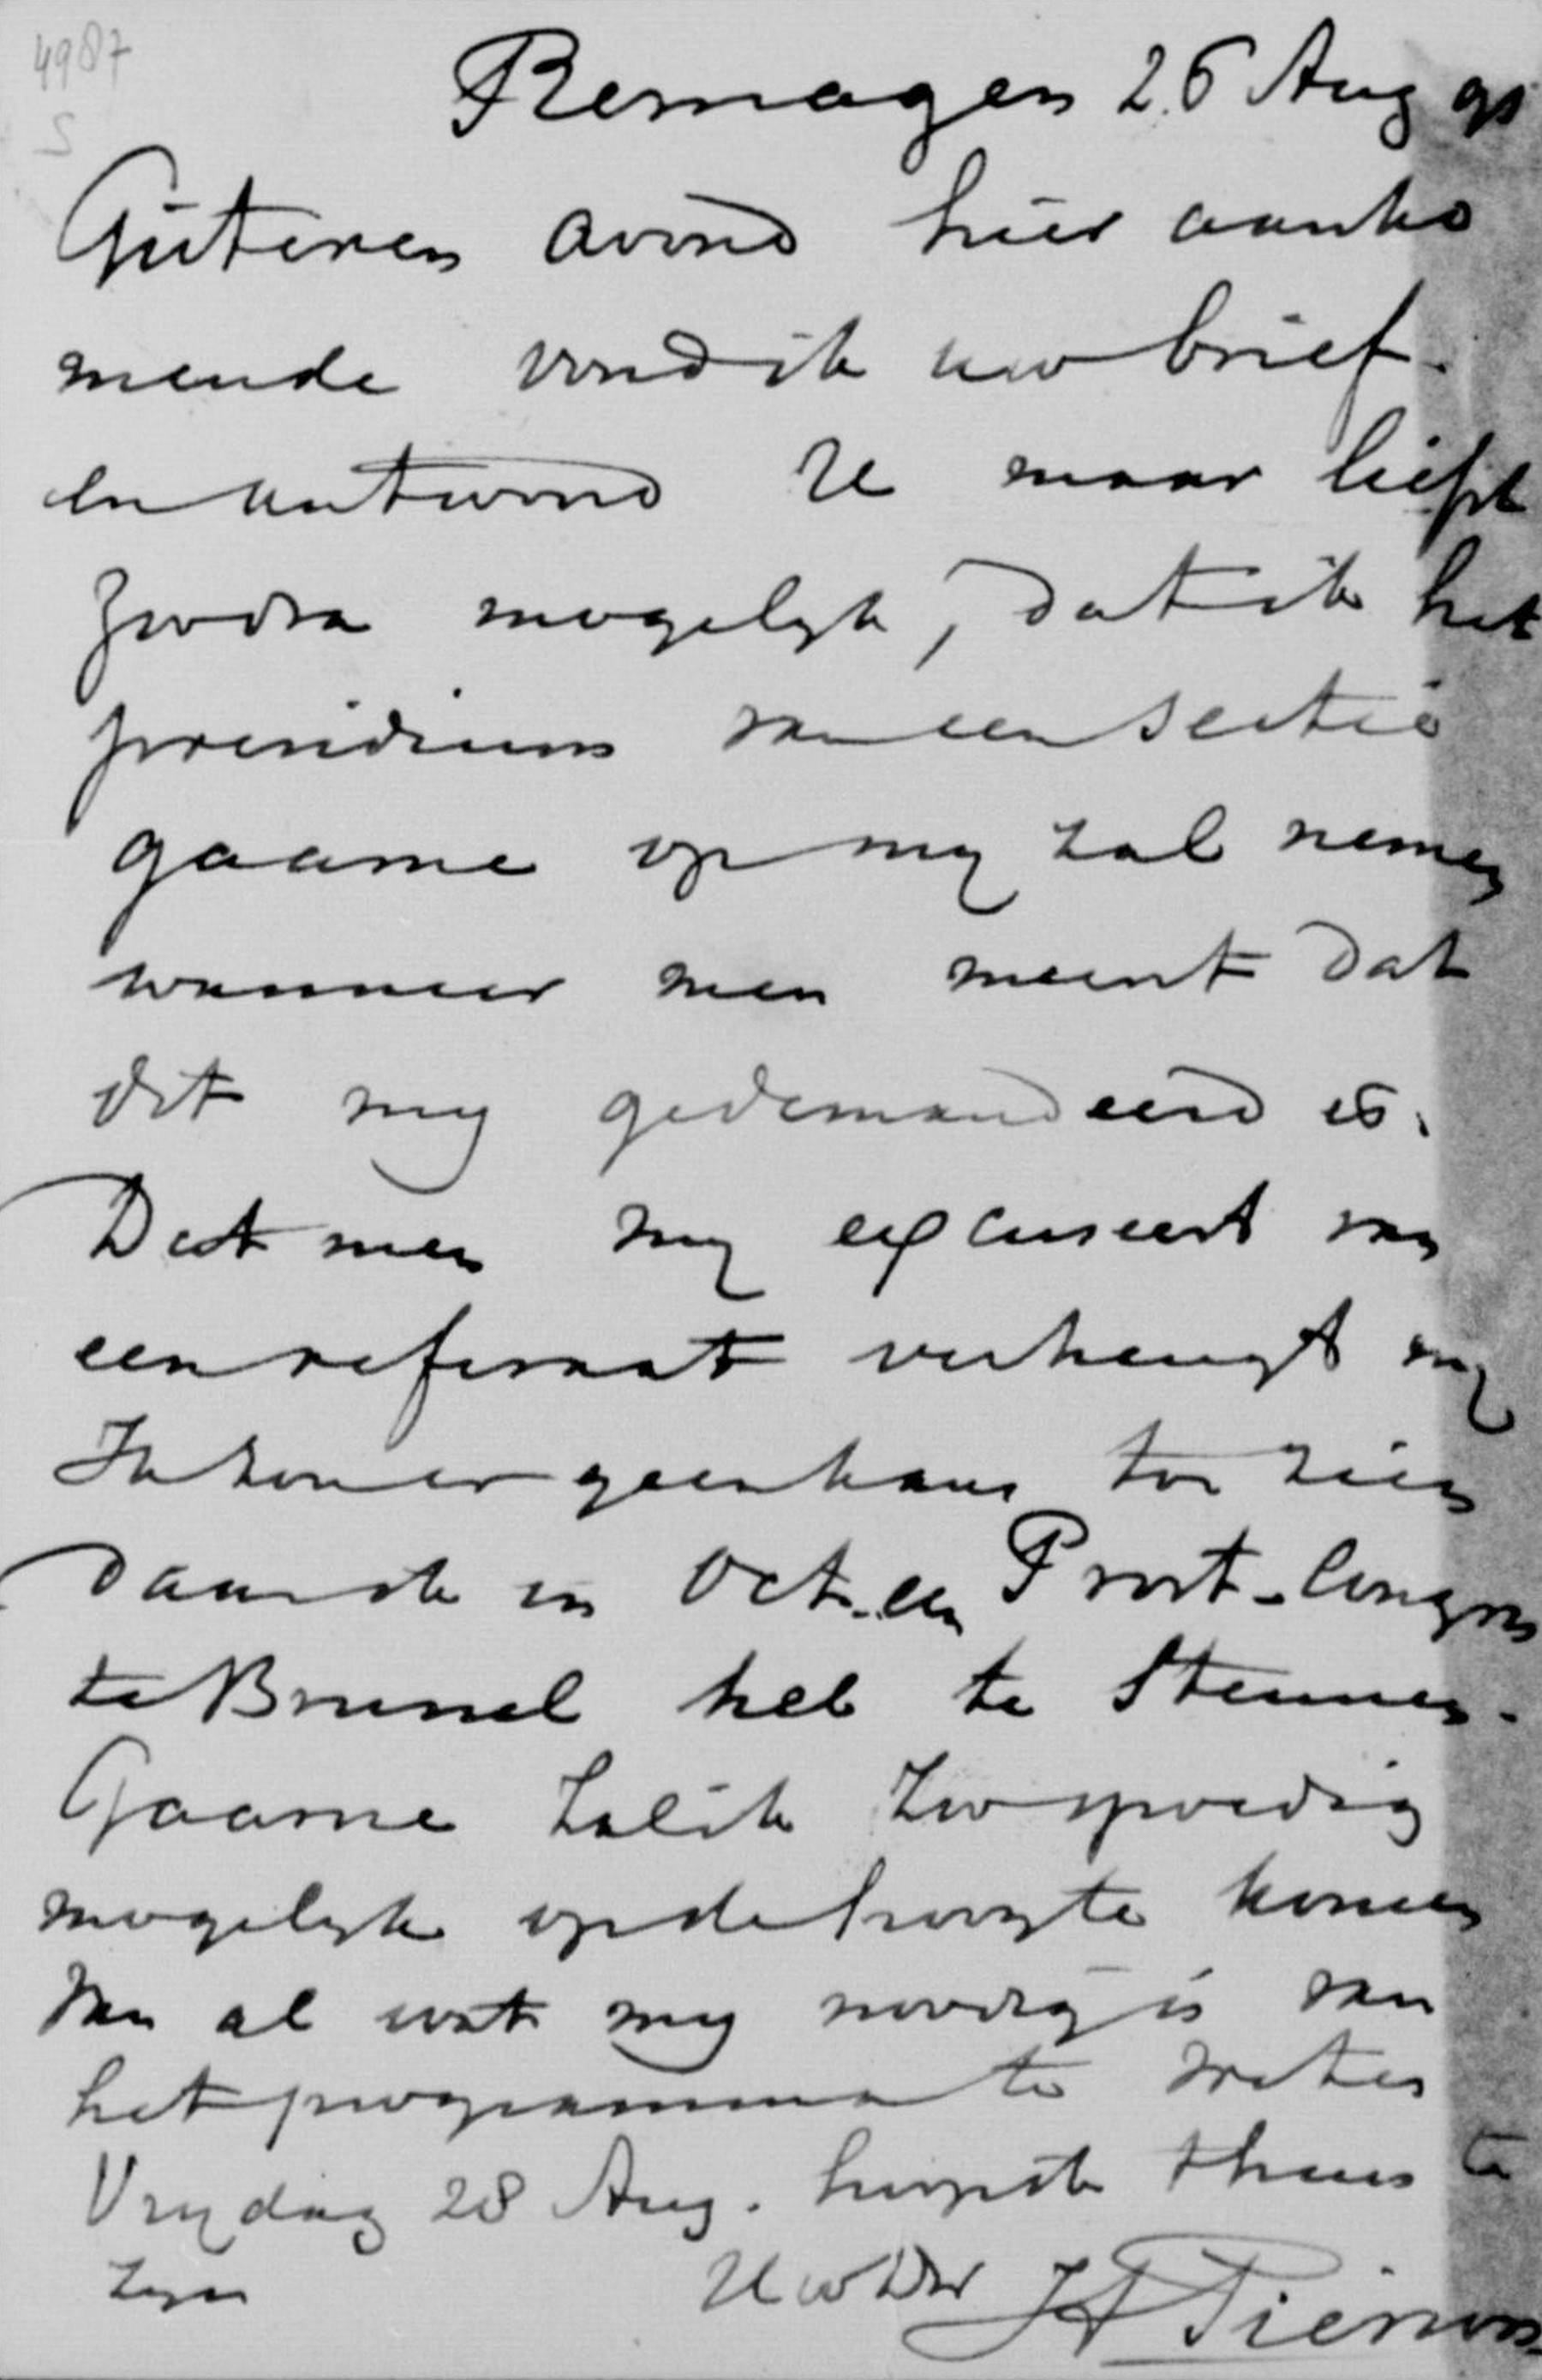 4987
S
Remagen 26 Aug 91
Gisteren avond hier aanko
mende vond ik uw brief.
en antwoord U maar liefst
zoodra mogelyk, dat ik het
presidium van een sectie
gaarne op my zal nemen
wanneer men meent dat
dit my gedemandeerd is.
Dat men my excuseert van
een referaat verheugt my
Ik zou er geen kans toe zien
daar ik in Oct. een Prot-Congres
te Brussel heb te Steunen.
Gaarne zal ik zoo spoedig
mogelyk op de hoogte komen
van al wat my noodig is van
het programma te weten
Vrydag 28 Aug. hoop ik thuis te
zyn Uw DW H Pierson